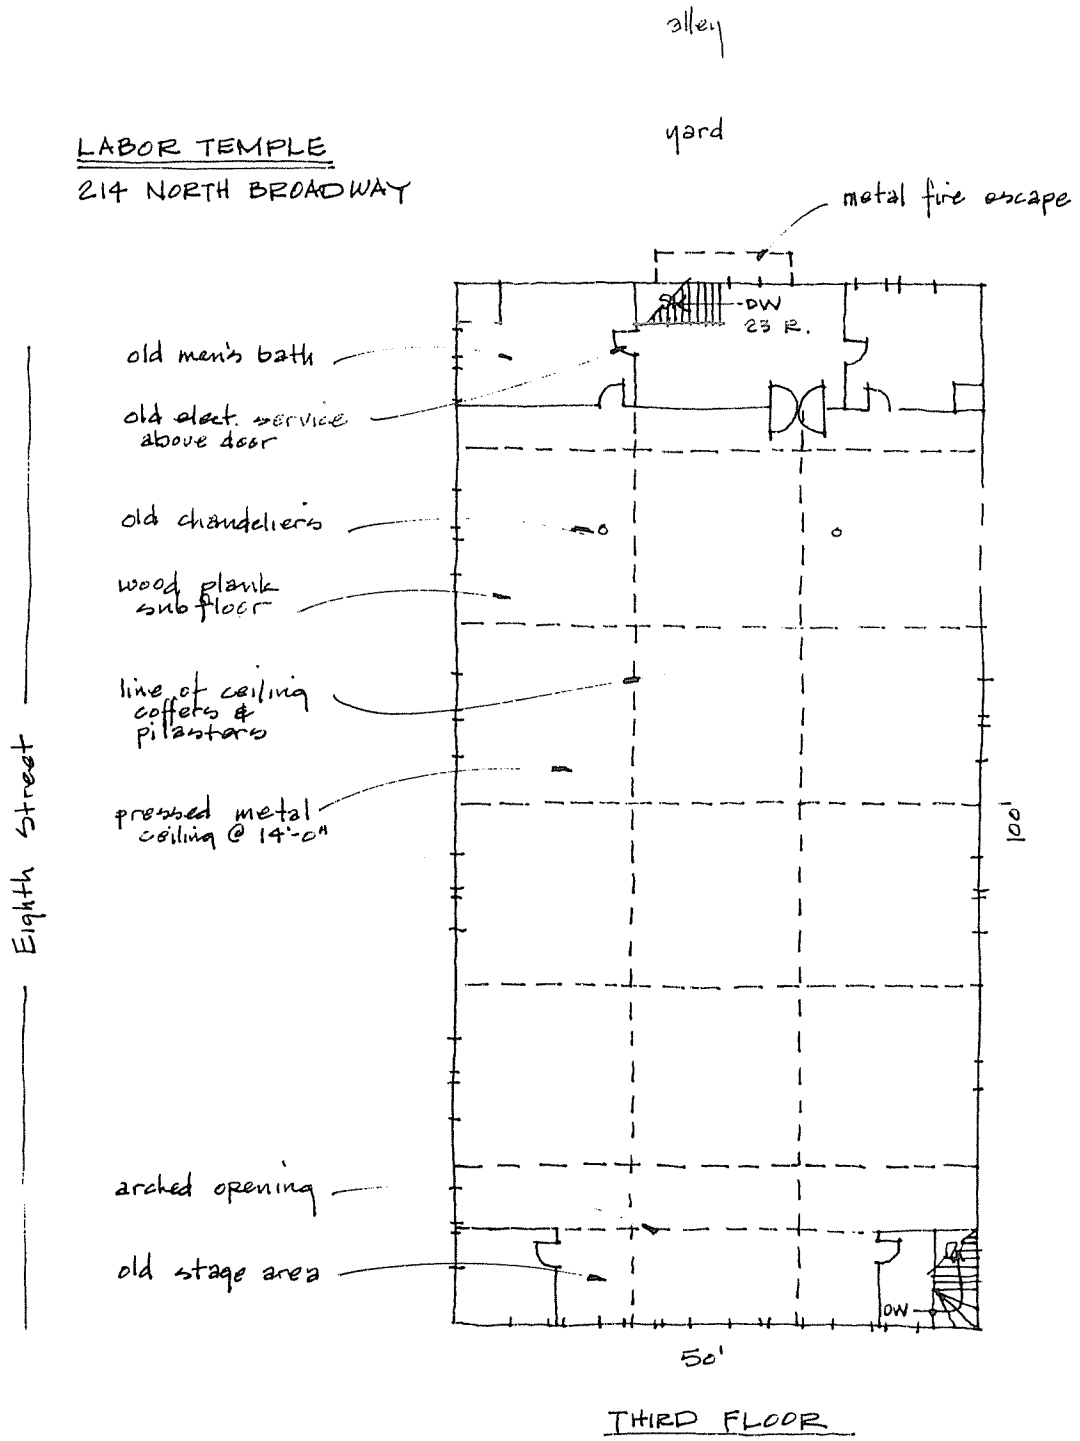 alley
yard
LABOR TEMPLE
214 NORTH BROADWAY
metal fire escape
DW
23 R.
old men's bath
old elect. service
above door
old chandeliers
wood plank
subfloor
line of ceiling
coffers &
pilasters
pressed metal
ceiling @ 14'-0"
Eighth Street
100'
arched opening
old stage area
DW
50'
THIRD FLOOR